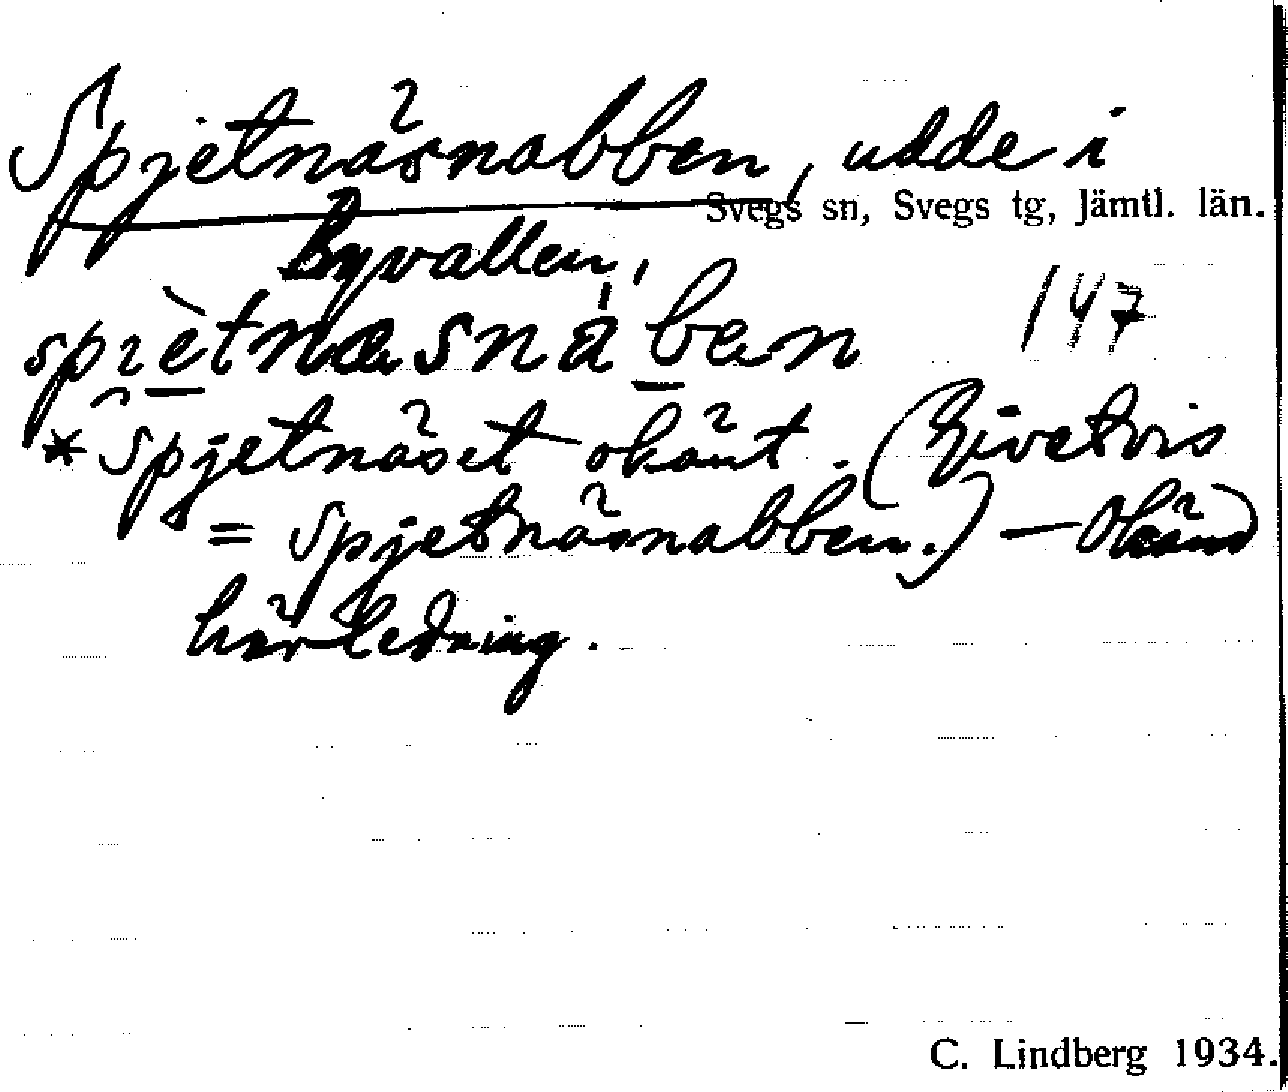 Spjetnäsnabben, udde i
Svegs sn, Svegs tg, Jämtl. län.
Byvallen,
147
*Spjetnäset okänt. (Givetvis
= Spjetnäsnabben.) — Okänd
härledning.
C. Lindberg 1934.